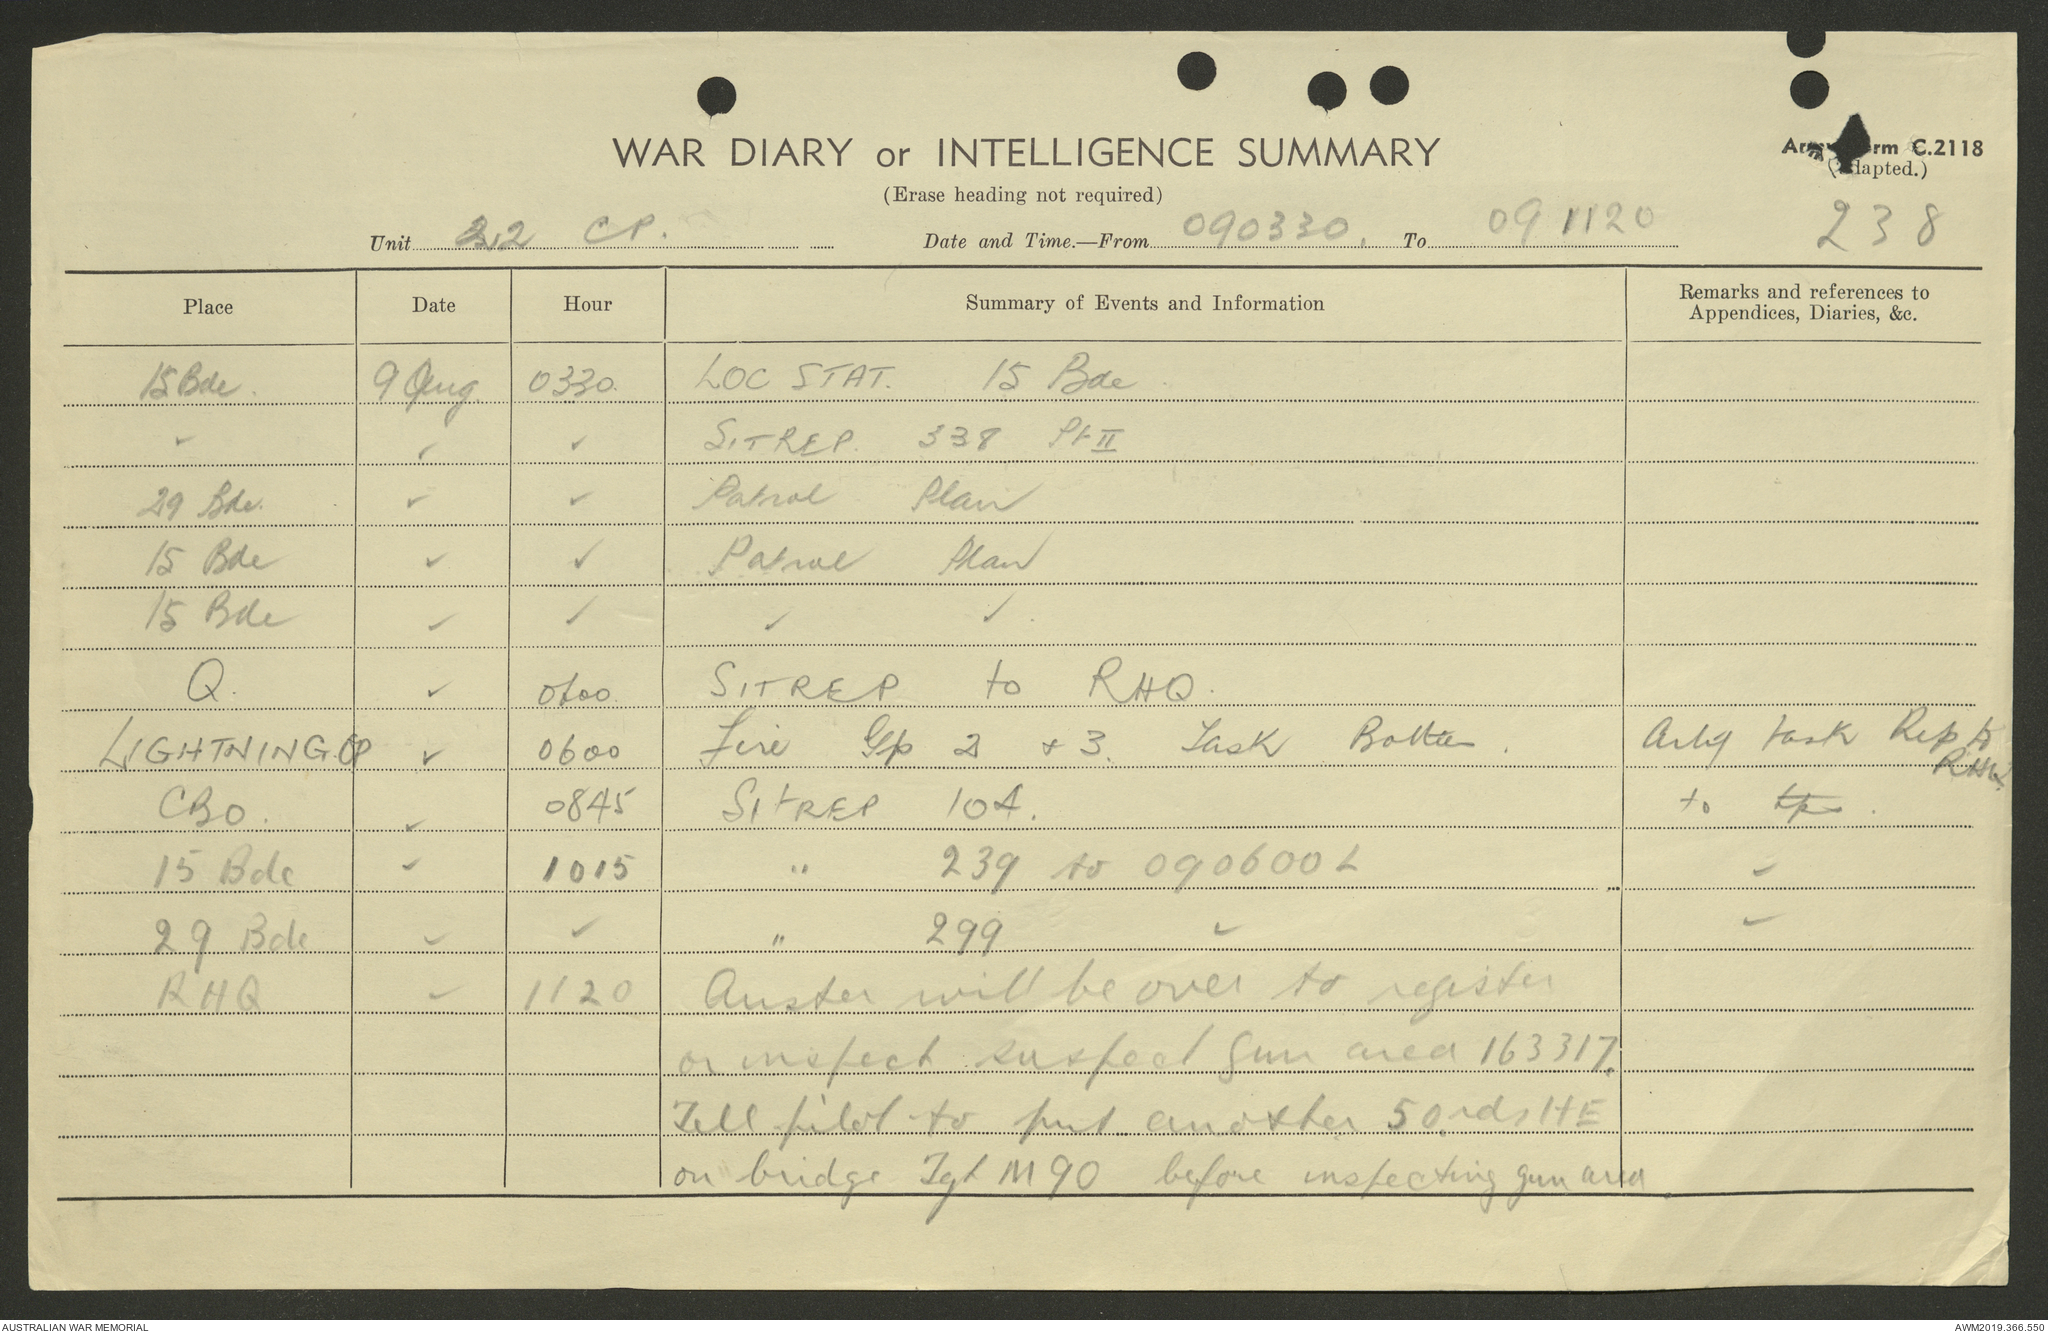 WAR DIARY or INTELLIGENCE SUMMARY
Army Form C.2118
(Adapted.)
(Erase heading not required)
Unit 2,2 CP. Date and Time.—From 090330. To 091120 238
Place Date Hour Summary of Events and Information Remarks and references to Appendices, Diaries, &c.
15 Bde. 9 Aug. 0330. LOC STAT. 15 Bde.
✓ ✓ ✓ SITREP. 338 Pt II
29 Bde. ✓ ✓ Patrol Plan
15 Bde ✓ ✓ Patrol Plan
15 Bde ✓ ✓ ✓ ✓
Q. ✓ SITREP to RHQ.
LIGHTNING. OP ✓ 0600 Fire Gp 2 + 3. Task Arty task Rep to RHQ.
CBO. ✓ 0845 SITREP 104. to
15 Bde ✓ 1015 " 239 to 090600L ✓
29 Bde ✓ ✓ " 299 ✓ ✓
RHQ ✓ 1120 Auster will be over to register
or inspect suspect gun area 163317.
Tell pilot to put another 50 rds HE
on bridge Tgt M90 before inspecting gun area.
AUSTRALIAN WAR MEMORIAL
AWM2019.366.550